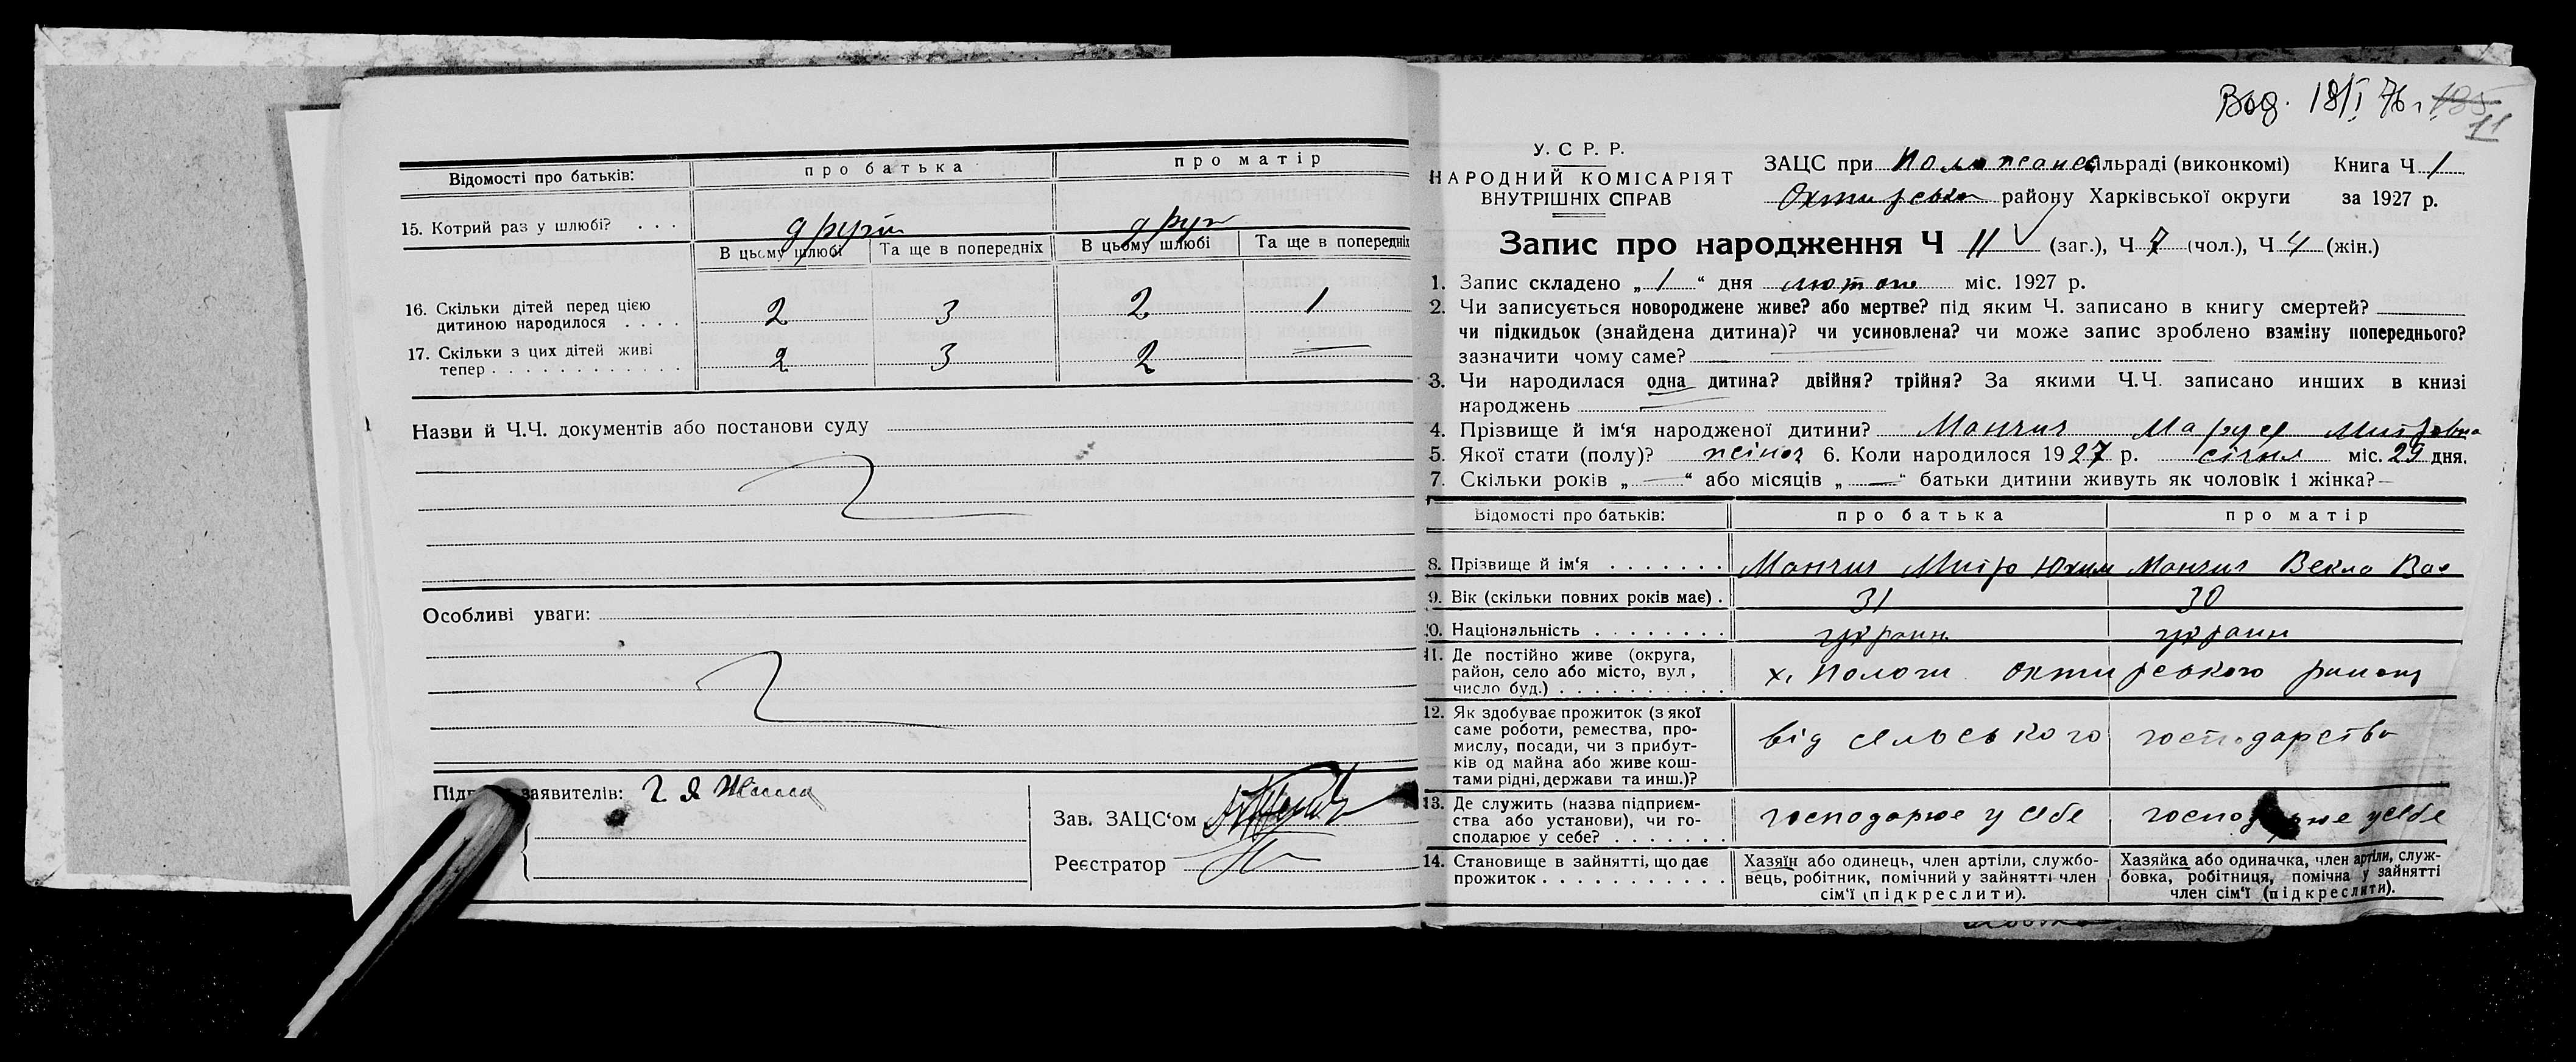 Відомості про батьків: про батька про матір
15. Котрий раз у шлюбі? . . . другій друг
В цьому шлюбі Та ще в попередніх В цьому шлюбі Та ще в попередніх
16. Скільки дітей перед цією
дитиною народилося . . . . 2 3 2 1
17. Скільки з цих дітей живі
тепер . . . . . . . . . . . . 2 3 2 —
Назви й Ч.Ч. документів або постанови суду
Особливі уваги:
заявителів:
Зав. ЗАЦС‘ом
Реєстратор
Вид. 18/I 76 г. 185
11
У. С. Р. Р.
НАРОДНИЙ КОМІСАРІЯТ
ВНУТРІШНІХ СПРАВ
ЗАЦС при сільраді (виконкомі) Книга Ч 1
Охтирськ району Харківської округи за 1927 р.
Запис про народження Ч 11 (заг.), Ч 7 (чол.), Ч 4 (жін.)
1. Запис складено „ 1 “ дня лютого міс. 1927 р.
2. Чи записується новороджене живе? або мертве? під яким Ч. записано в книгу смертей?
чи підкидьок (знайдена дитина)? чи усиновлена? чи може запис зроблено взаміну попереднього?
зазначити чому саме?
3. Чи народилася одна дитина? двійня? трійня? За якими Ч.Ч. записано инших в книзі
народжень
4. Прізвище й ім‘я народженої дитини? Манчич Маруся Митровна
5. Якої стати (полу)? жіноч 6. Коли народилося 1927 р. січня міс. 29 дня.
7. Скільки років „ — “ або місяців „ — “ батьки дитини живуть як чоловік і жінка? —
Відомості про батьків: про батька про матір
8. Прізвище й ім‘я . . . . . . . Манчич Митро Юхим Манчич Векла Вас
9. Вік (скільки повних років має) . 31 30
10. Національність . . . . . . . . україн україн
11. Де постійно живе (округа,
район, село або місто, вул.,
число буд.) . . . . . . . . . . . х. Пологи Охтирського району
12. Як здобуває прожиток (з якої
саме роботи, ремества, про-
мислу, посади, чи з прибут-
ків од майна або живе кош-
тами рідні, держави та инш.)? від сельського господарства
13. Де служить (назва підприєм-
ства або установи), чи го-
сподарює у себе? . . . . . . . господарює у себе господарює у себе
14. Становище в зайнятті, що дає
прожиток . . . . . . . . . . . .
Хазяїн або одинець, член артіли, службо-
вець, робітник, помічний у зайнятті член
сім‘ї (підкреслити).
Хазяйка або одиначка, член артіли, служ-
бовка, робітниця, помічна у зайнятті
член сім‘ї (підкреслити).